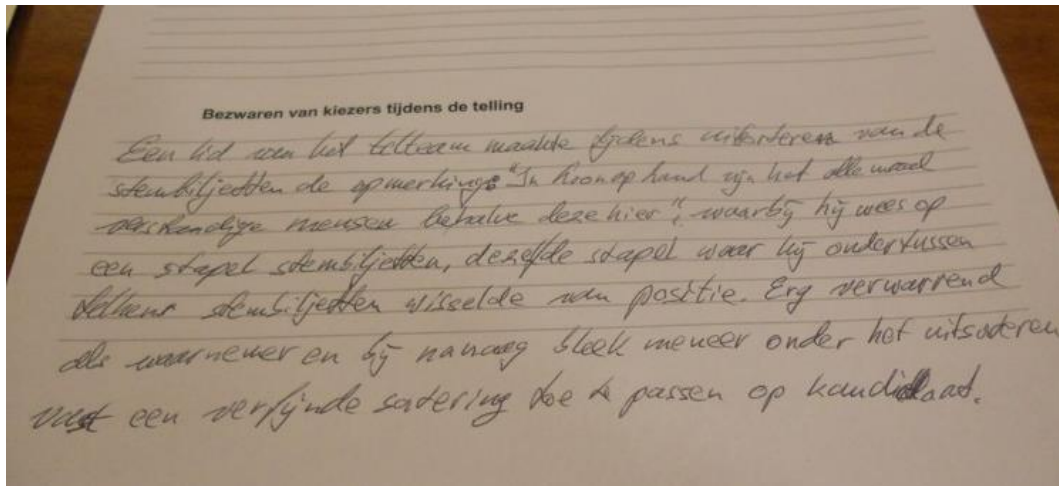 Bezwaren van kiezers tijdens de telling
Een lid van het telteam maakte tijdens uitsorteren van de
stembiljetten de opmerking: "In hoon op hand zijn het allemaal
verstandige mensen behalve deze hier", waarbij hij wees op
een stapel stembiljetten, dezelfde stapel waar hij ondertussen
telkens stembiljetten wisselde van positie. Erg verwarrend
als waarnemer en bij navraag bleek meneer onder het uitsorteren
vast een verfijnde sortering toe te passen op kandidaat.